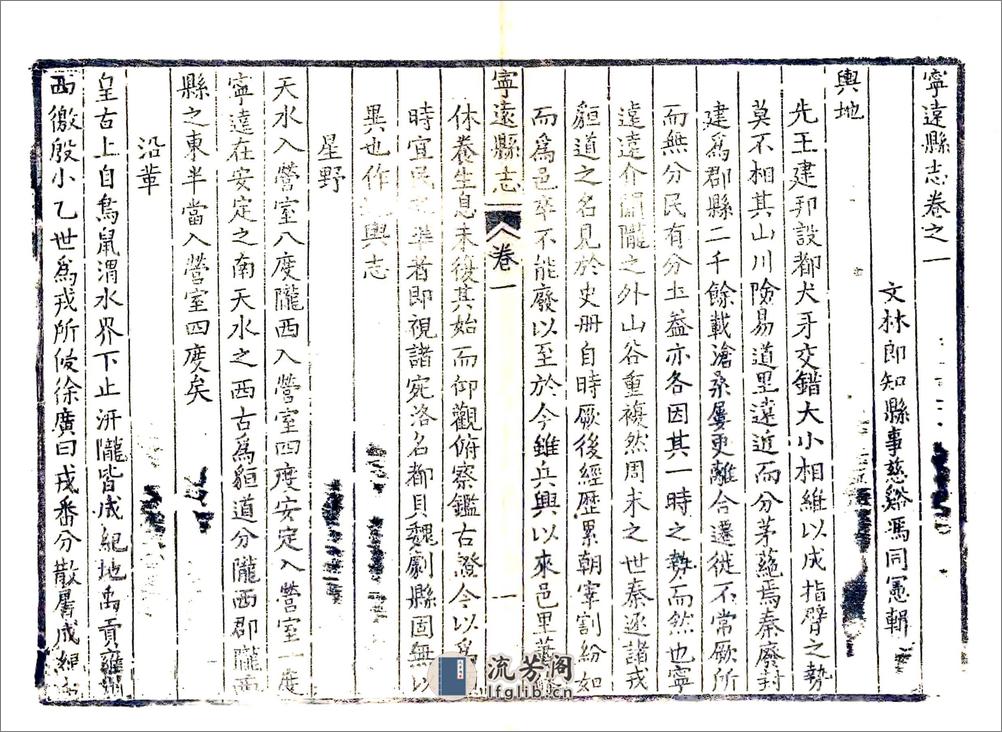 寧遠縣志卷之一
文林郎知縣事慈谿馮同憲輯
輿地
先王建邦設都犬牙交錯大小相維以成指臂之勢
莫不相其山川險易道里遠近而分茅蕝焉秦廢封
建爲郡縣二千餘載滄桑屢更離合遷徙不常厥所
而無分民有分土葢亦各因其一時之勢而然也寧
遠遠介關隴之外山谷重複然周末之世秦逐諸戎
䝠道之名見於史册自時厥後經歷累朝宰割紛如
而爲邑卒不能廢以至於今雖兵興以來邑里蕭
寧遠縣志
卷一
一
休養生息未復其始而仰觀俯察鑑古證今以爲
時宜民準者即視諸宛洛名都貝魏劇縣固無以
異也作輿志
星野
天水入營室八度隴西入營室四度安定入營室一度
寧遠在安定之南天水之西古爲䝠道分隴西郡隴西
縣之東半當入營室四度矣
沿革
皇古上自鳥鼠渭水界下止汧隴皆成紀地禹貢雍州
西徼殷小乙世爲戎所侵徐廣曰戎番分散屬成紀
流芳阁
lfglib.cn